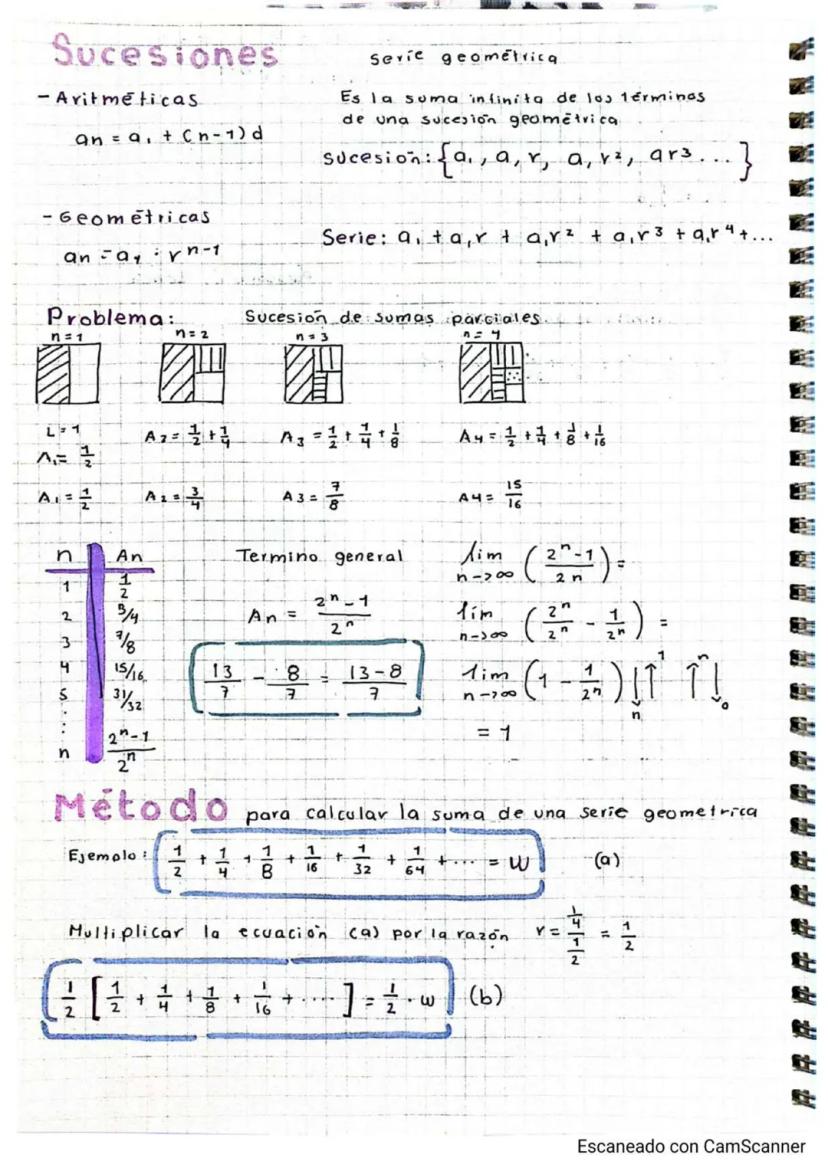 Sucesiones
- Aritméticas
an = a1 + (n-1)d
- Geométricas
an = a1 · r^n-1
Serie geométrica
Es la suma infinita de los términos
de una sucesión geométrica
Sucesión: {a1, a1r, a1r², ar³ ...}
Serie: a1 + a1r + a1r² + a1r³ + a1r⁴ + ...
Problema: Sucesión de sumas parciales
n=1 n=2 n=3 n=4
L=1
A1= 1/2 A2= 1/2 + 1/4 A3 = 1/2 + 1/4 + 1/8 A4= 1/2 + 1/4 + 1/8 + 1/16
A1 = 1/2 A2= 3/4 A3= 7/8 A4= 15/16
n An
1 1/2
2 3/4
3 7/8
4 15/16
5 31/32
⋮
n 2^n-1/2^n
Termino general
An = 2^n-1/2^n
13/7 - 8/7 = 13-8/7
lim n->∞ (2^n-1/2n) =
lim n->∞ (2^n/2^n - 1/2^n) =
lim n->∞ (1 - 1/2^n) ↓n ↑1 ↑n ↓0
= 1
Método para calcular la suma de una serie geometrica
Ejemplo: 1/2 + 1/4 + 1/8 + 1/16 + 1/32 + 1/64 + ... = W (a)
Multiplicar la ecuación (a) por la razón r = 1/4 / 1/2 = 1/2
1/2 [1/2 + 1/4 + 1/8 + 1/16 + ....] = 1/2 · w (b)
Escaneado con CamScanner